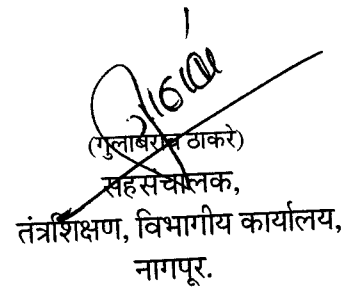 (गुलाबराव ठाकरे)
सहसंचालक,
तंत्रशिक्षण, विभागीय कार्यालय,
नागपूर.